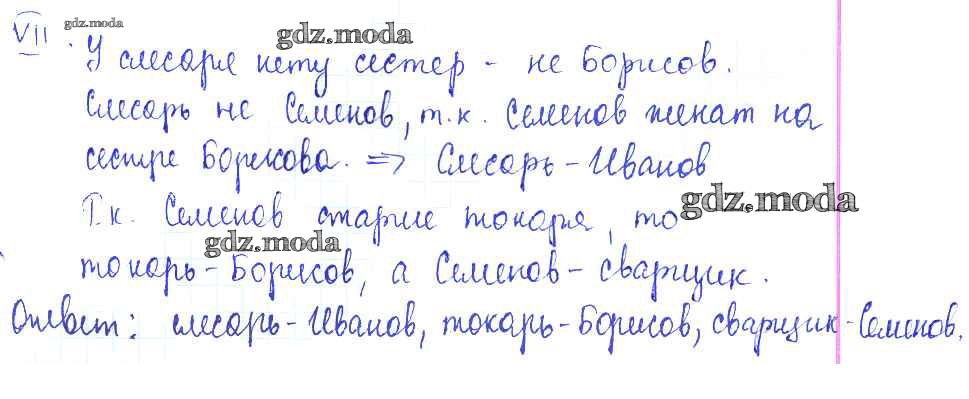 VII gdz.moda
gdz.moda
У слесаря нету сестер - не Борисов.
Слесарь не Семенов, т.к. Семенов женат на
сестре Борисова. => Слесарь - Иванов
gdz.moda
Т.к. Семенов старше токаря, то
gdz.moda
токарь - Борисов, а Семенов - сварщик.
Ответ: слесарь - Иванов, токарь - Борисов, сварщик - Семенов.